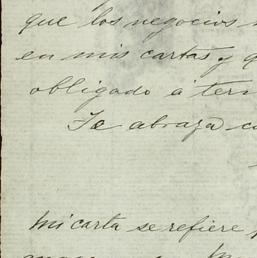 que los negocios
en mis cartas y q
obligado á ter
Te abraza c
mi carta se refiere